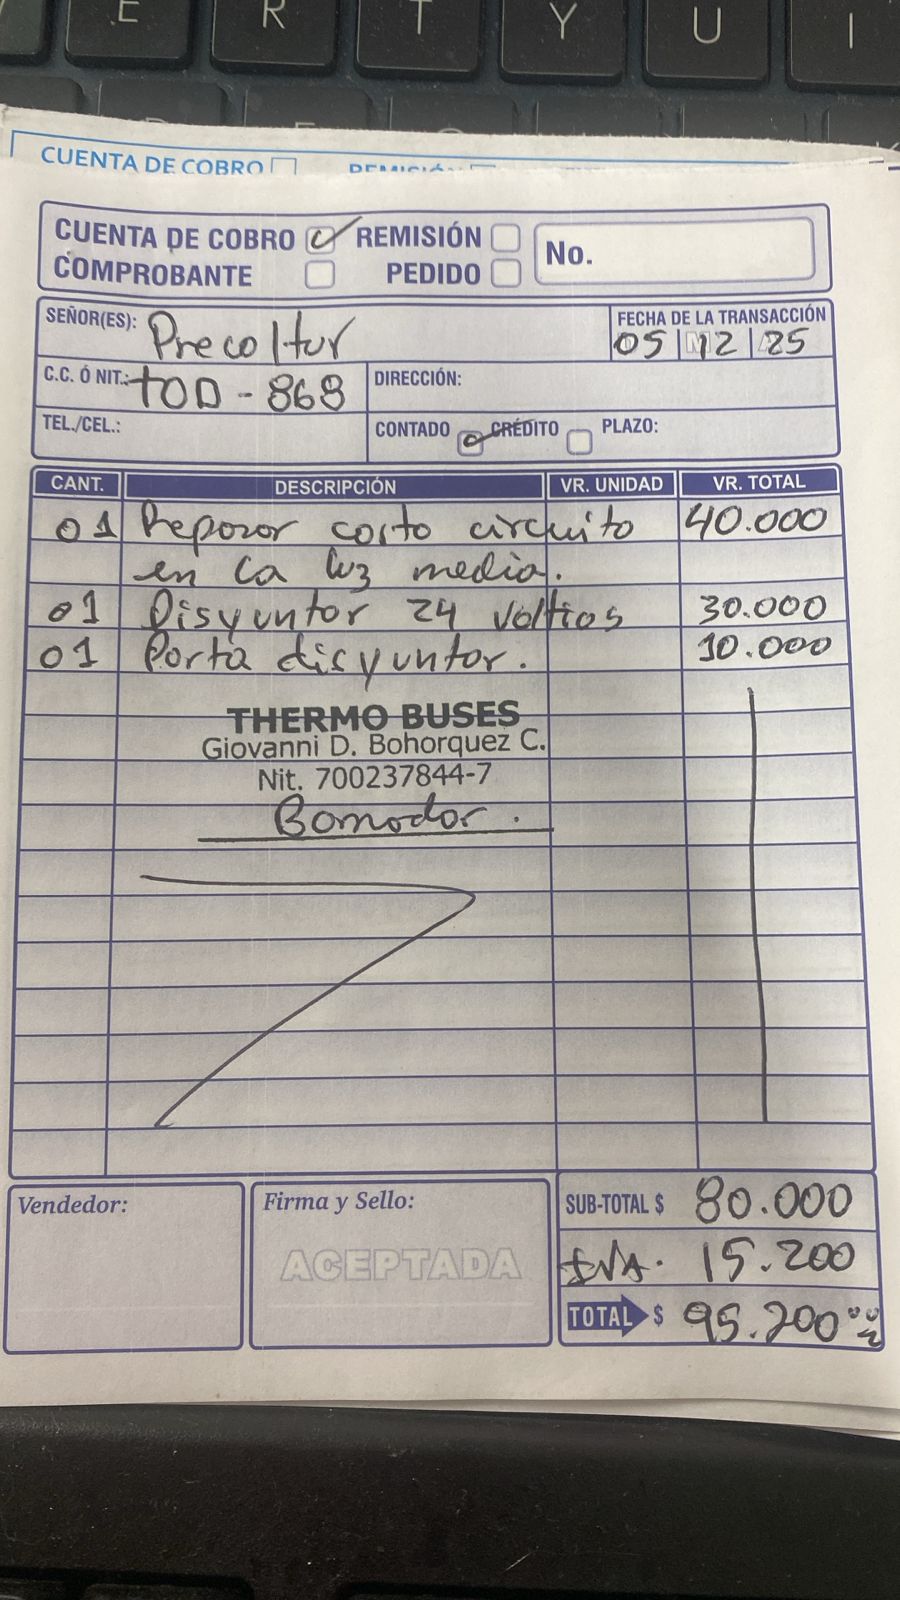 E R T Y U I
CUENTA DE COBRO REMISIÓN
CUENTA DE COBRO REMISIÓN No.
COMPROBANTE PEDIDO
SEÑOR(ES): Precoltur
FECHA DE LA TRANSACCIÓN
05 12 25
C.C. Ó NIT.: TOD-868 DIRECCIÓN:
TEL./CEL.: CONTADO CRÉDITO PLAZO:
CANT. DESCRIPCIÓN VR. UNIDAD VR. TOTAL
01 Reparar corto circuito 40.000
en la luz media.
01 Disyuntor 24 voltios 30.000
01 Porta disyuntor. 10.000
THERMO BUSES
Giovanni D. Bohorquez C.
Nit. 700237844-7
Vendedor: Firma y Sello: SUB-TOTAL $ 80.000
ACEPTADA IVA. 15.200
TOTAL $ 95.200